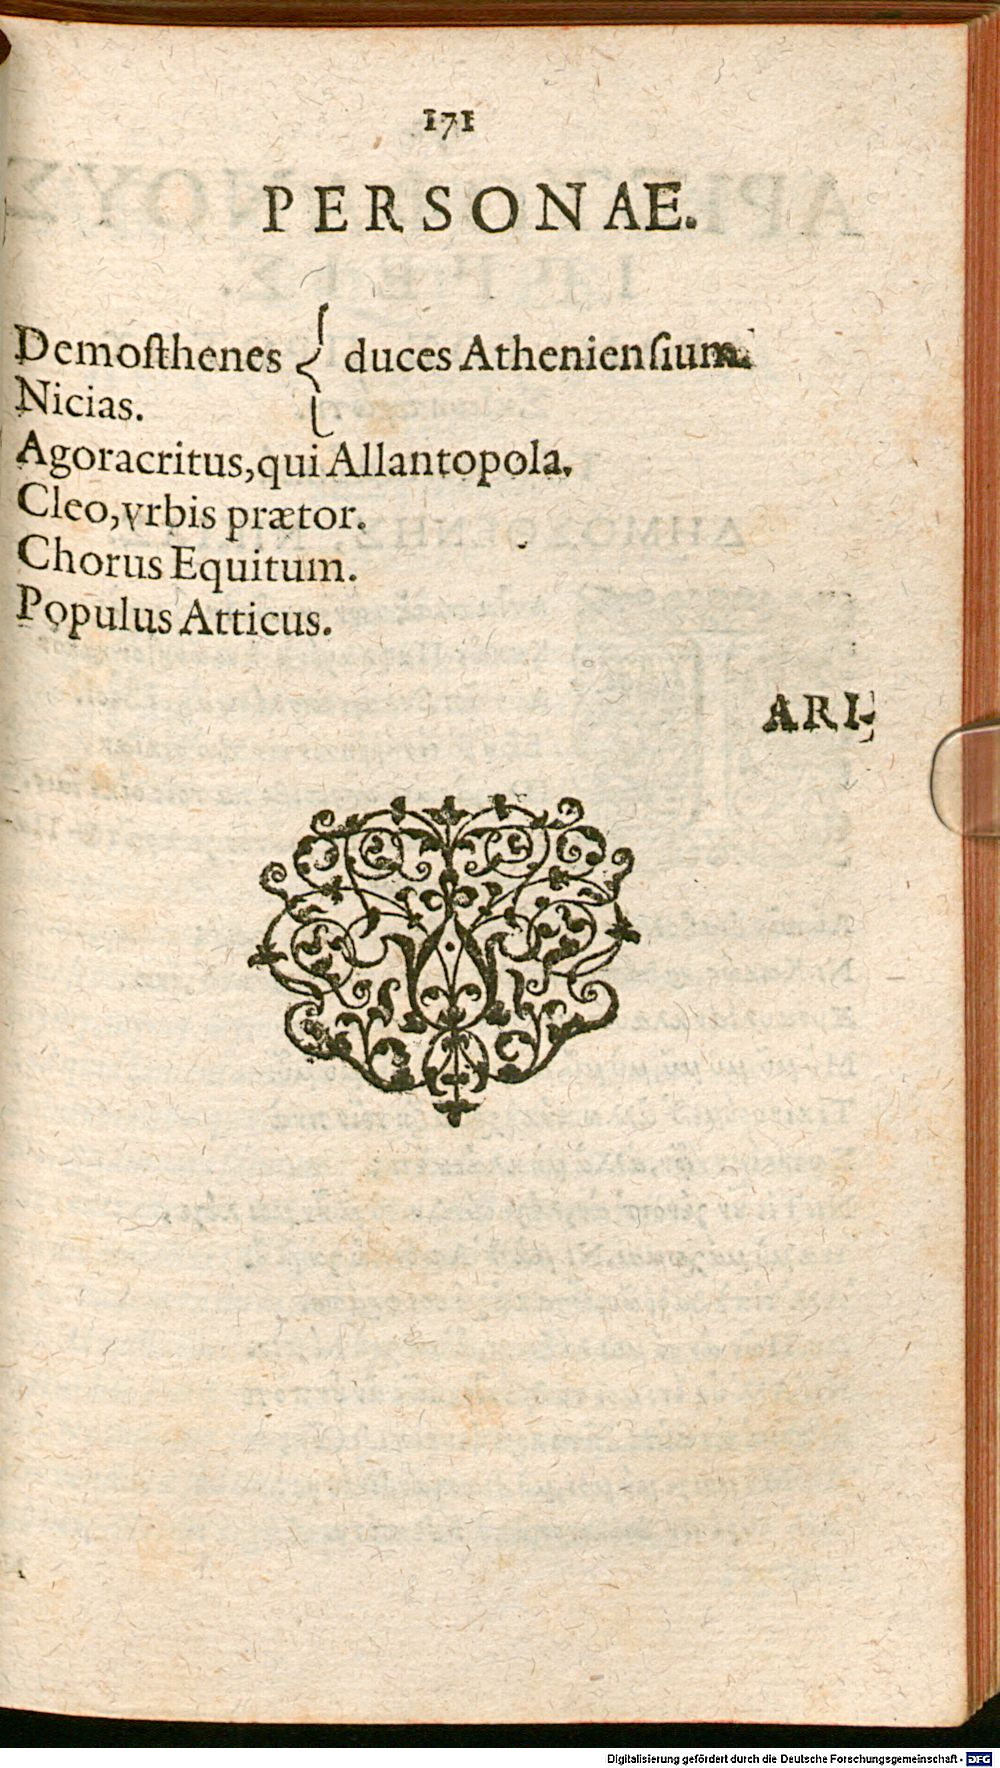 171
PERSONAE.
Demoſthenes { duces Athenienſium.
Nicias.
Agoracritus, qui Allantopola.
Cleo, vrbis prætor.
Chorus Equitum.
Populus Atticus.
ARI-
Digitalisierung gefördert durch die Deutsche Forschungsgemeinschaft - DFG